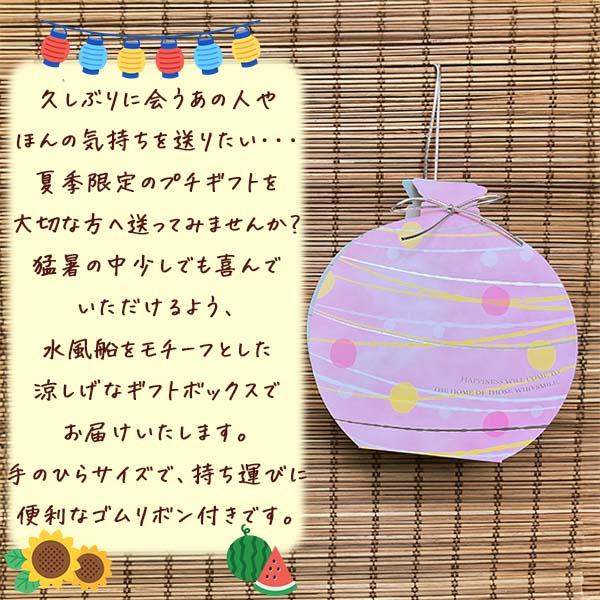 久しぶりに会うあの人や
ほんの気持ちを送りたい・・・
夏季限定のプチギフトを
大切な方へ送ってみませんか?
猛暑の中少しでも喜んで
いただけるよう、
水風船をモチーフとした
涼しげなギフトボックスで
お届けいたします。
手のひらサイズで、持ち運びに
便利なゴムリボン付きです。
HAPPINESS WILL COME TO
THE HOME OF THOSE WHO SMILE.